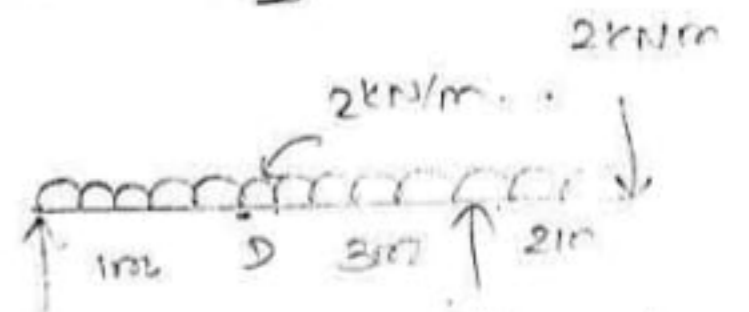 2kNm
2kN/m
1m D 3m 2m